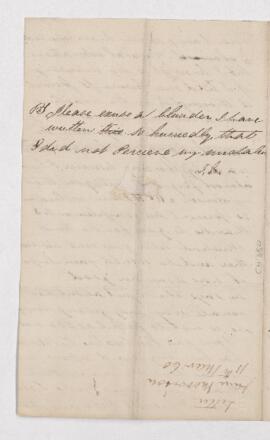 PS Please excuse a blunder I have
written this so hurriedly that
I did not Perceive my mistake
Letter
11th Mar 60